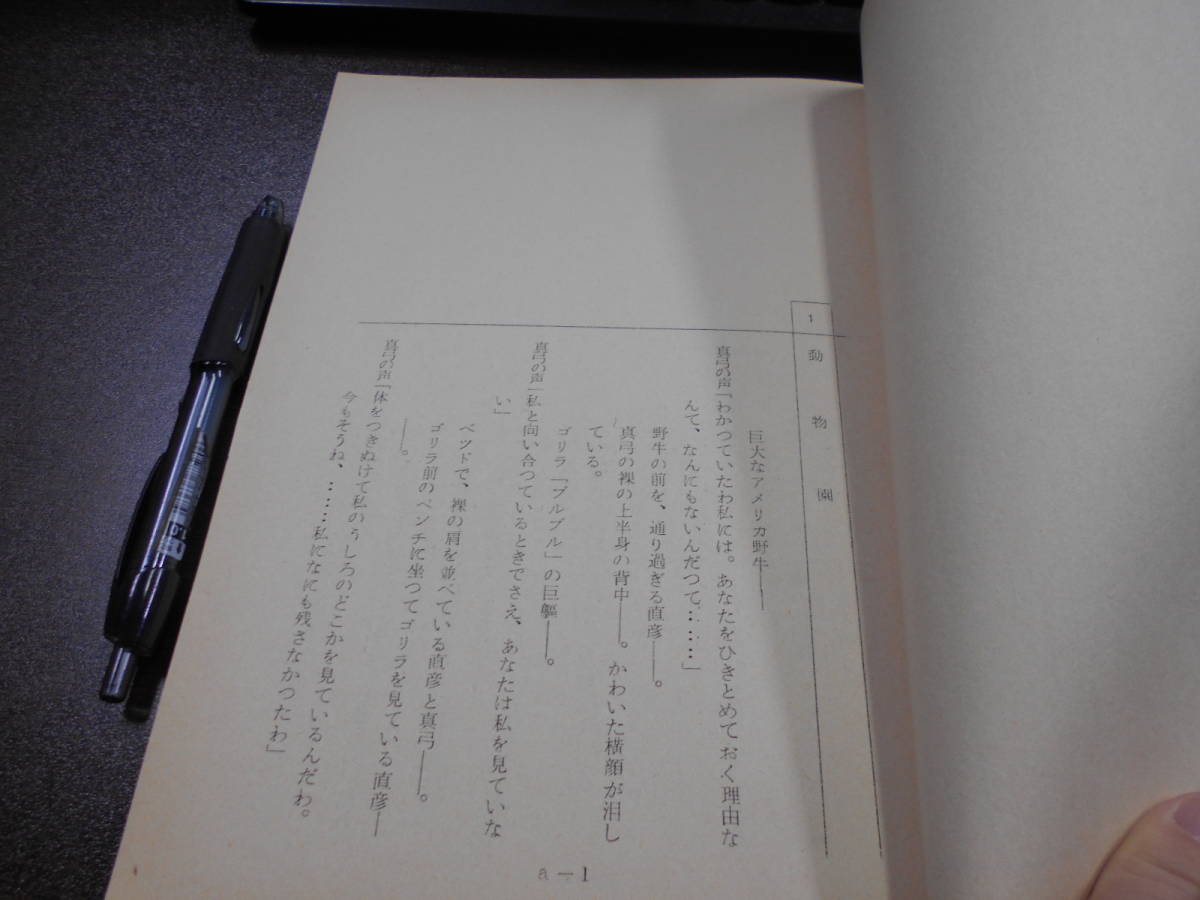 1 動物園
巨大なアメリカ野牛――
真弓の声「わかつていたわ私には。あなたをひきとめておく理由な
んて、なんにもないんだつて……」
野牛の前を、通り過ぎる直彦――。
真弓の裸の上半身の背中――。かわいた横顔が泪し
ている。
ゴリラ「ブルブル」の巨軀――。
真弓の声「私と向い合つているときでさえ、あなたは私を見ていな
い」
ベツドで、裸の肩を並べている直彦と真弓――。
ゴリラ前のベンチに坐つてゴリラを見ている直彦―
―。
真弓の声「体をつきぬけて私のうしろのどこかを見ているんだわ。
今もそうね、……私になにも残さなかつたわ」
a－1